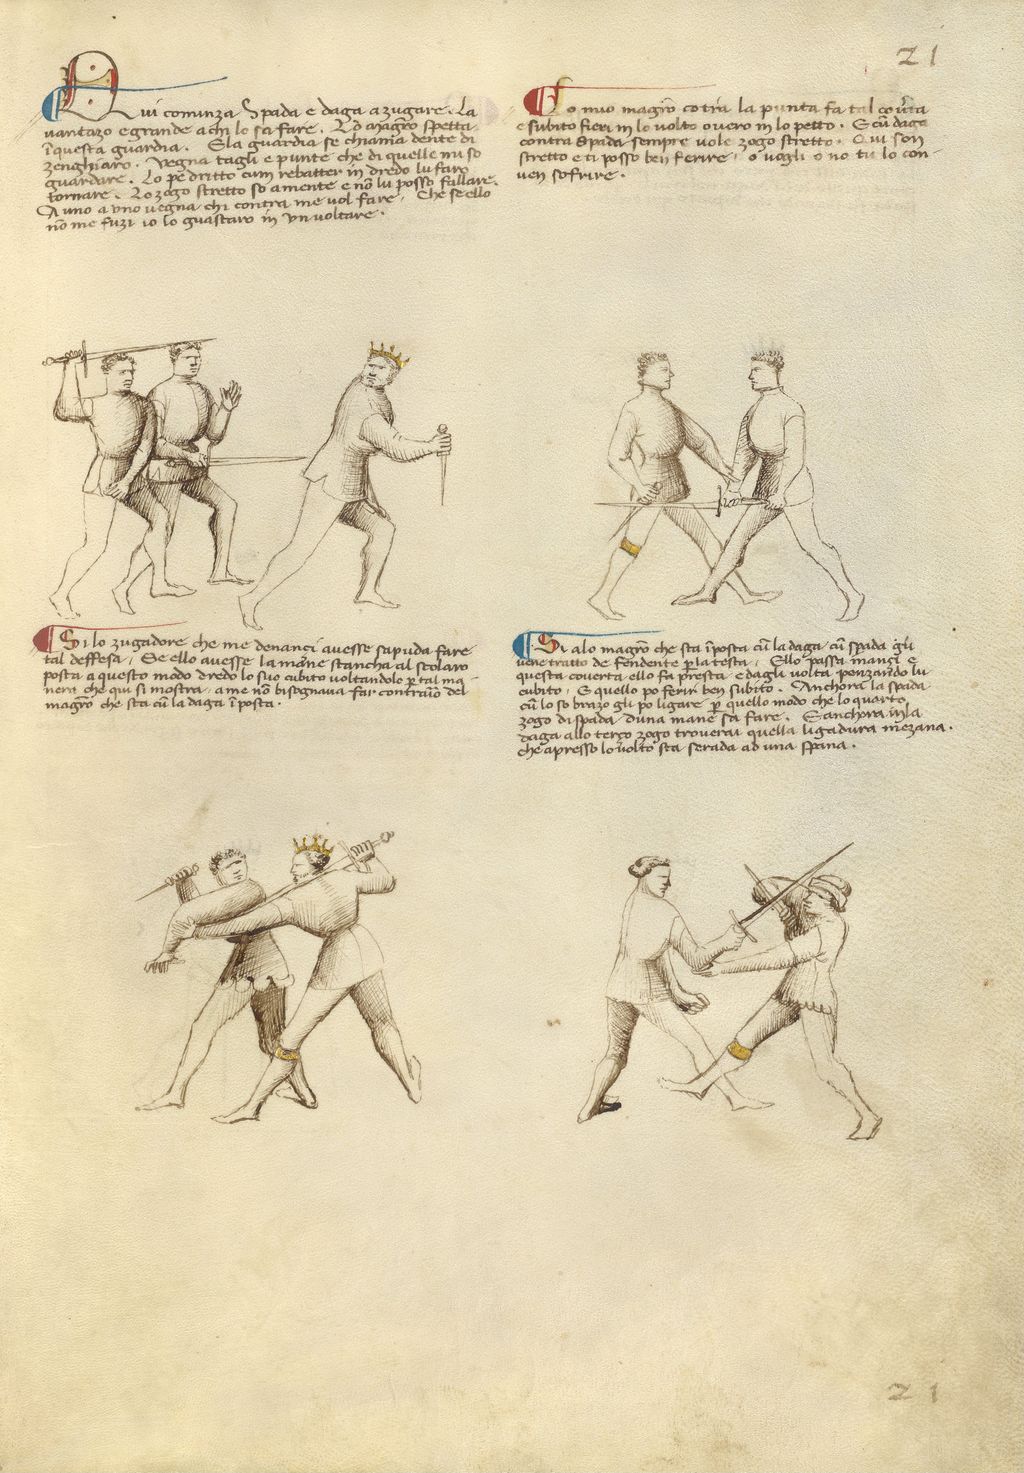 21
Qui cominza Spada e daga a zugare. La
vantazo e grande a chi lo sa fare. Lo magro spetta
i questa guardia. E la guardia se chiama dente di
zenghiaro. Vegna tagli e punte che di quelle mi so
guardare. Lo pe dritto cum rebatter in dredo lu faro
tornare. Lo zogo stretto so a mente e no lu posso fallare.
A uno a uno vegna chi contra me vol fare. Che se ello
no me fuzi io lo guastaro in un voltare.
Lo mio magro cotra la punta fa tal covta
e subito fieri in lo volto overo in lo petto. E cu daga
contra spada sempre vole zogo stretto. Qui son
stretto e ti posso ben ferire, o vogli o no tu lo con-
ven sofrire.
Si lo zugadore che me denanci avesse sapuda fare
tal deffesa, Se ello avesse la mane stancha al scolaro
posta a questo modo dredo lo suo cubito voltandolo p tal ma-
nera che qui si mostra, a me no bisognava far contrario del
magro che sta cu la daga i posta.
Si alo magro che sta i posta cu la daga, cu spada gli
vene tratto de fendente p la testa, Ello passa inanci e
questa coverta ello fa presta, e dagli volta penzando lu
cubito, E quello po ferir ben subito. Anchora la spada
cu lo so brazo gli po ligare p quello modo che lo quarto
zogo di spada d una mane sa fare. E anchora in la
daga allo terzo zogo troverai quella ligadura mezana.
che apresso lo volto sta serada ad una spana.
21